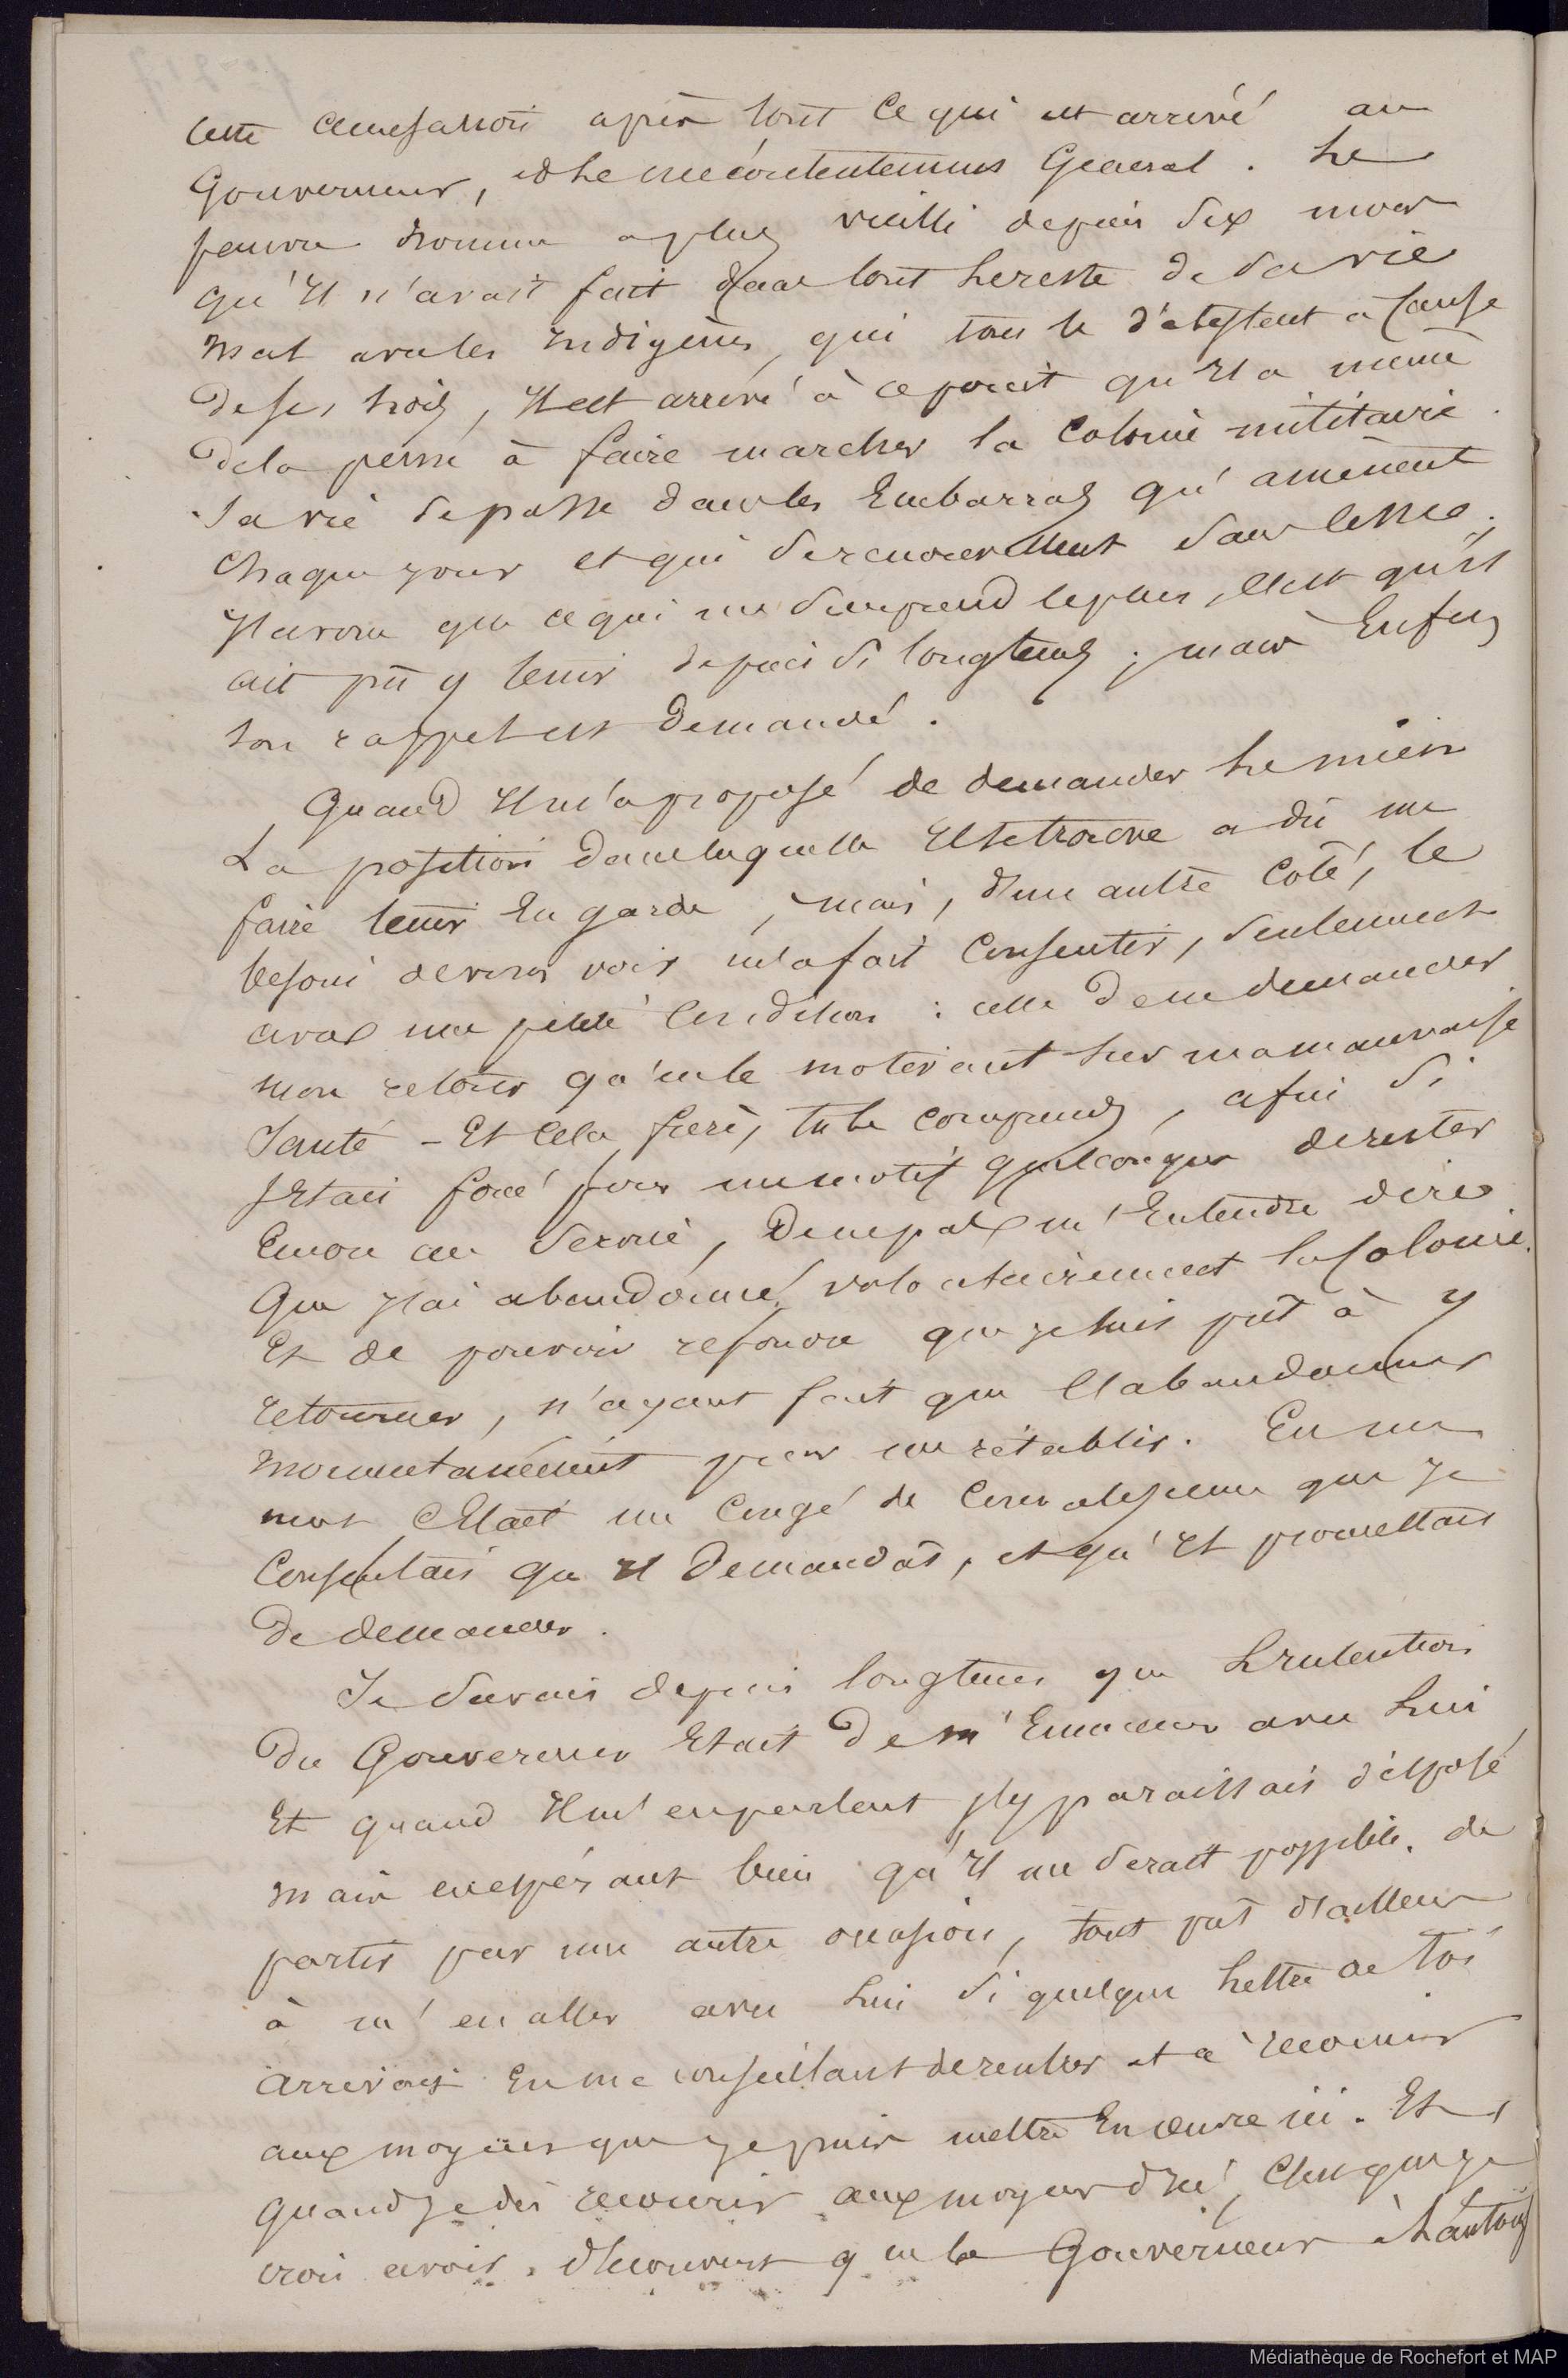 cette accusation après tout ce qui est arrivé au
Gouverneur, et le mécontentement General. Le
pauvre homme a plus vieilli depuis six mois
qu'Il n'avait fait dans tout le reste de sa vie
mal avec les Indigènes, qui tous le détestent à cause
de ses lois, Il est arrivé à ce point qu'Il a même
de la peine à faire marcher la Colonie militaire.
Sa vie se passe dans les Embarras qu'amènent
chaque jour et qui se renouvellent sans cesse;
J'avoue que ce qui me surprend le plus, c'est qu'il
ait pû y tenir depuis si longtems; mais Enfin
son rappel est demandé.
Quand Il m'a proposé de demander le mien
La position dans laquelle Il se trouve a dû me
faire tenir En garde, mais, d'une autre Coté, le
besoin de vous voir m'a fait Consentir, seulement
avec une petite Condition : celle de ne demander
mon retour qu'en le motivant sur ma mauvaise
Santé - Et Cela, frère, tu le comprends, afin si
J'Etais forcé pour un motif quelconque de rester
Encore au Service, de ne pas m'Entendre dire
Que J'ai abandonné volontairement la Colonie.
Et de pouvoir repondre que je suis prêt à y
retourner, n'ayant fait que l'abandonner
momentanément pour me rétablir. En un
mot C'Etait un Congé de Convalescence que je
Consentais qu'Il Demandât, et qu'Il promettait
de demander.
Je savais depuis longtems que L'Intention
du Gouverneur Etait De m'Emmener avec Lui
Et quand Il m'en parlait J'y paraissais disposé
mais en espérant bien qu'Il me serait possible de
partir par une autre occasion, tout prêt d'ailleurs
à m'en aller avec Lui si quelque Lettre de toi
arrivait En me conseillant de rentrer et à recourir
aux moyens que je puis mettre En œuvre ici. Et
quand je dis recourir aux moyens d'Ici, C'est que je
crois avoir découvert que le Gouverneur